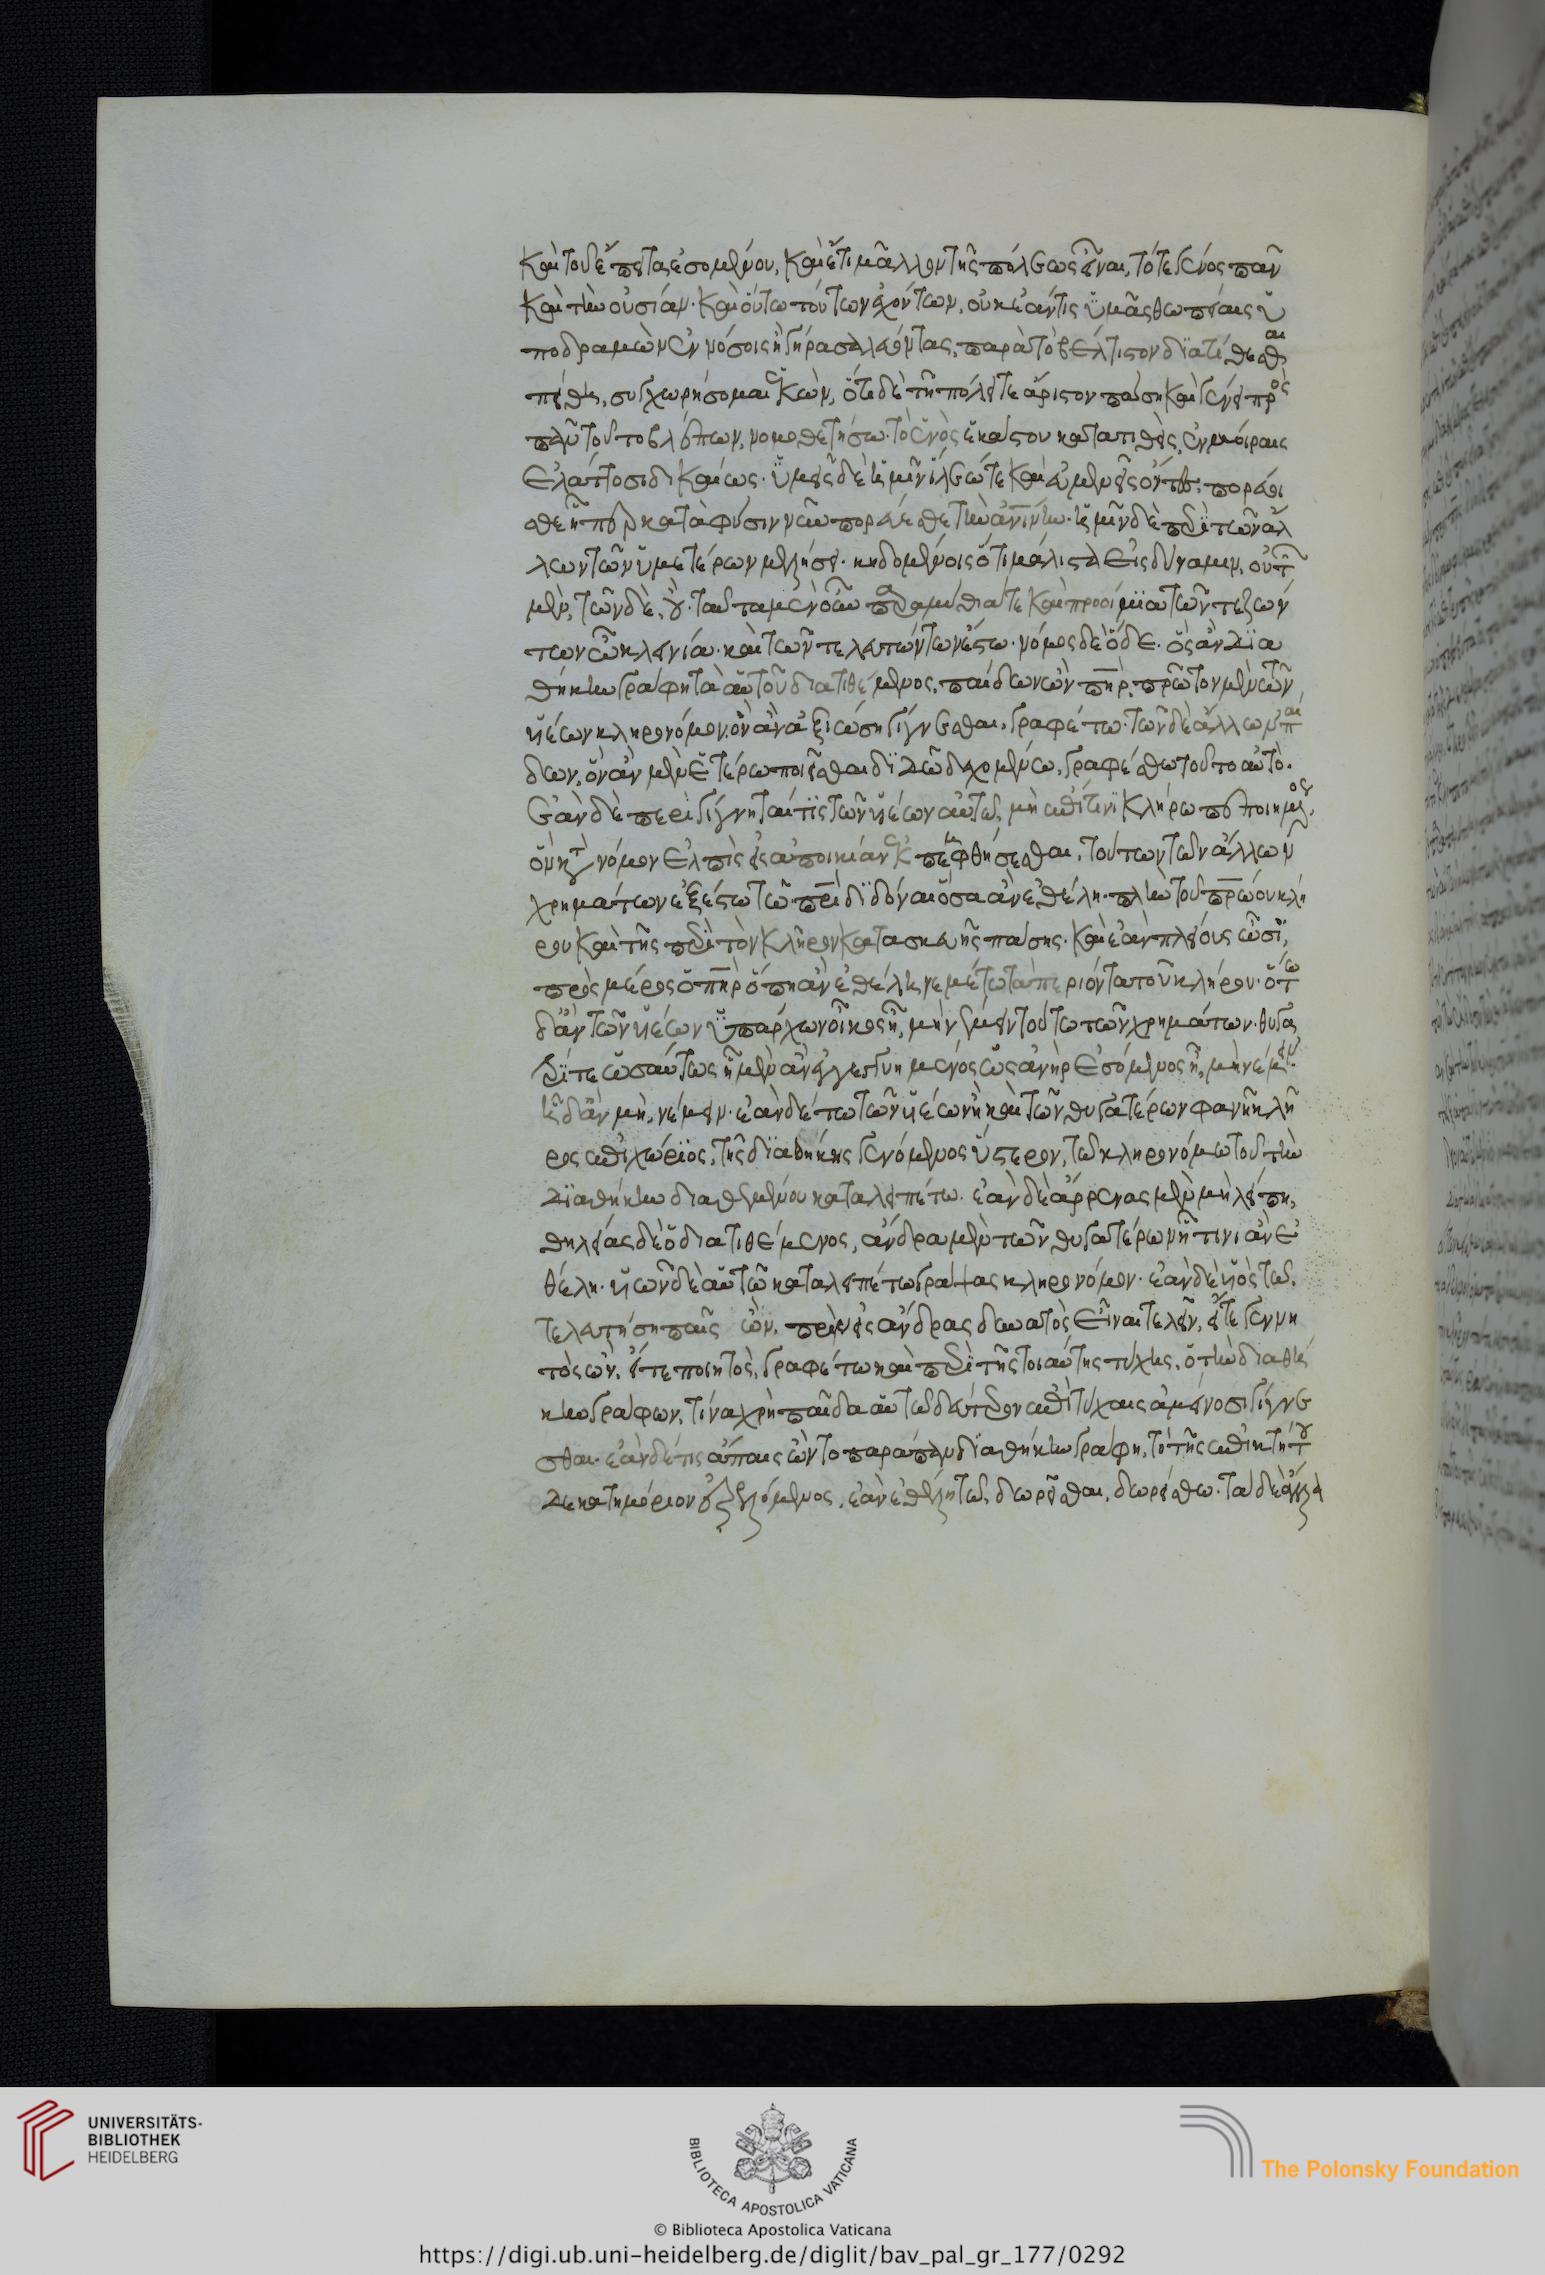 καὶ τοῦ ἔπειτα ἐσομένου, καὶ ἔτι μᾶλλον τῆς πόλεως εἶναι, τό τε γένος πᾶν
καὶ τὴν οὐσίαν· καὶ οὕτω τούτων ἐχόντων, οὐκ ἐάν τις ὑμᾶς θωπείαις ὑ
ποδραμὼν ἐν νόσοις ἢ γήρᾳ σαλεύοντας, παρὰ τὸ βέλτιστον διατίθεσθαι
πείθῃ, συγχωρήσομαι ἑκών, ὅ τι δὲ τῇ πόλει τε ἄριστον πάσῃ καὶ γένει πρὸς
πᾶν τοῦτο βλέπων, νομοθετήσω· τὸ ἑνὸς ἑκάστου κατατιθεὶς, ἐν μοίραις
ἐλάττοσι δικαίως· ὑμεῖς δὲ ἡμῖν ἵλεῴ τε καὶ εὐμενεῖς ὄντες, πορεύοι
σθε ᾗπερ κατὰ φύσιν νῦν πορεύεσθε τὴν ἀνίνην· ἡμῖν δὲ περὶ τῶν ἄλ
λων τῶν ὑμετέρων μελήσει· κηδομένοις ὅτι μάλιστα εἰς δύναμιν, οὐ τῶν
μὲν, τῶν δὲ, οὔ· ταῦτα μὲν οὖν παραμύθιά τε καὶ προοίμια τῶν τε ζών
των ὦ κλεινία· καὶ τῶν τελευτώντων ἔστω· νόμος δὲ ὅδε· ὃς ἂν δια
θήκην γράφῃ τὰ αὑτοῦ διατιθέμενος, παίδων ὢν πατήρ, πρῶτον μὲν τῶν
υἱέων κληρονόμον, ὃν ἂν ἀξιώσῃ γίγνεσθαι, γραφέτω· τῶν δὲ ἄλλων παί
δων, ὃν ἂν μὲν ἑτέρῳ ποιεῖσθαι διδῷ δεχομένῳ, γραφέσθω τοῦτο αὐτό.
ἐὰν δὲ περιγίγνηταί τις τῶν υἱέων αὐτῷ, μὴ ἐπί τινι κλήρῳ πεποιημένος,
ὃν κατὰ νόμον ἐλπὶς εἰς ἀποικίαν ἐκπεμφθήσεσθαι, τούτῳ τῶν ἄλλων
χρημάτων ἐξέστω τῷ πατρὶ διδόναι ὅσα ἂν ἐθέλῃ· πλὴν τοῦ πατρῴου κλή
ρου καὶ τῆς περὶ τὸν κλῆρον κατασκευῆς πάσης· καὶ ἐὰν πλείους ὦσι,
πρὸς μέρος ὁ πατὴρ ὅπῃ ἂν ἐθέλῃ νεμέτω τὰ περιόντα τοῦ κλήρου· ὅτῳ
δ' ἂν τῶν υἱέων ὑπάρχων οἶκος ᾖ, μὴ νέμειν τούτῳ τῶν χρημάτων· θυγα
τρί τε ὡσαύτως ᾗ μὲν ἂν ἐγγεγυημένος ὡς ἀνὴρ ἐσόμενος ᾖ, μὴ νέμειν·
ᾗ δ' ἂν μὴ, νέμειν· ἐὰν δέ τῳ τῶν υἱέων ἢ καὶ τῶν θυγατέρων φανῇ κλῆ
ρος ἐπιχώριος, τῆς διαθήκης γενόμενος ὕστερον, τῷ κληρονόμῳ τοῦ τὴν
διαθήκην διαθεμένου καταλειπέτω· ἐὰν δὲ ἄρρενας μὲν μὴ λείπῃ,
θηλείας δὲ ὁ διατιθέμενος, ἄνδρα μὲν τῶν θυγατέρων ᾗ τινι ἂν ἐ
θέλῃ· υἱὸν δὲ αὑτῷ καταλειπέτω γράψας κληρονόμον· ἐὰν δὲ υἱός τῳ,
τελευτήσῃ παῖς ὢν, πρὶν εἰς ἄνδρας δυνατὸς εἶναι τελεῖν, εἴτε γεννη
τὸς ὢν, εἴτε ποιητός, γραφέτω καὶ περὶ τῆς τοιαύτης τύχης, ὁ τὴν διαθή
κην γράφων, τίνα χρὴ παῖδα αὐτῷ δεύτερον ἐπὶ τύχαις ἀμείνοσι γίγνε
σθαι· ἐὰν δέ τις ἄπαις ὢν τὸ παράπαν διαθήκην γράφῃ, τὸ τῆς ἐπικτήτου
δεκατημόριον ἐξελόμενος, ἐὰν ἐθέλῃ τῳ, δωρεῖσθαι, δωρείσθω· τὰ δὲ ἄλλα
UNIVERSITÄTS-
BIBLIOTHEK
HEIDELBERG
BIBLIOTECA APOSTOLICA VATICANA
The Polonsky Foundation
© Biblioteca Apostolica Vaticana
https://digi.ub.uni-heidelberg.de/diglit/bav_pal_gr_177/0292